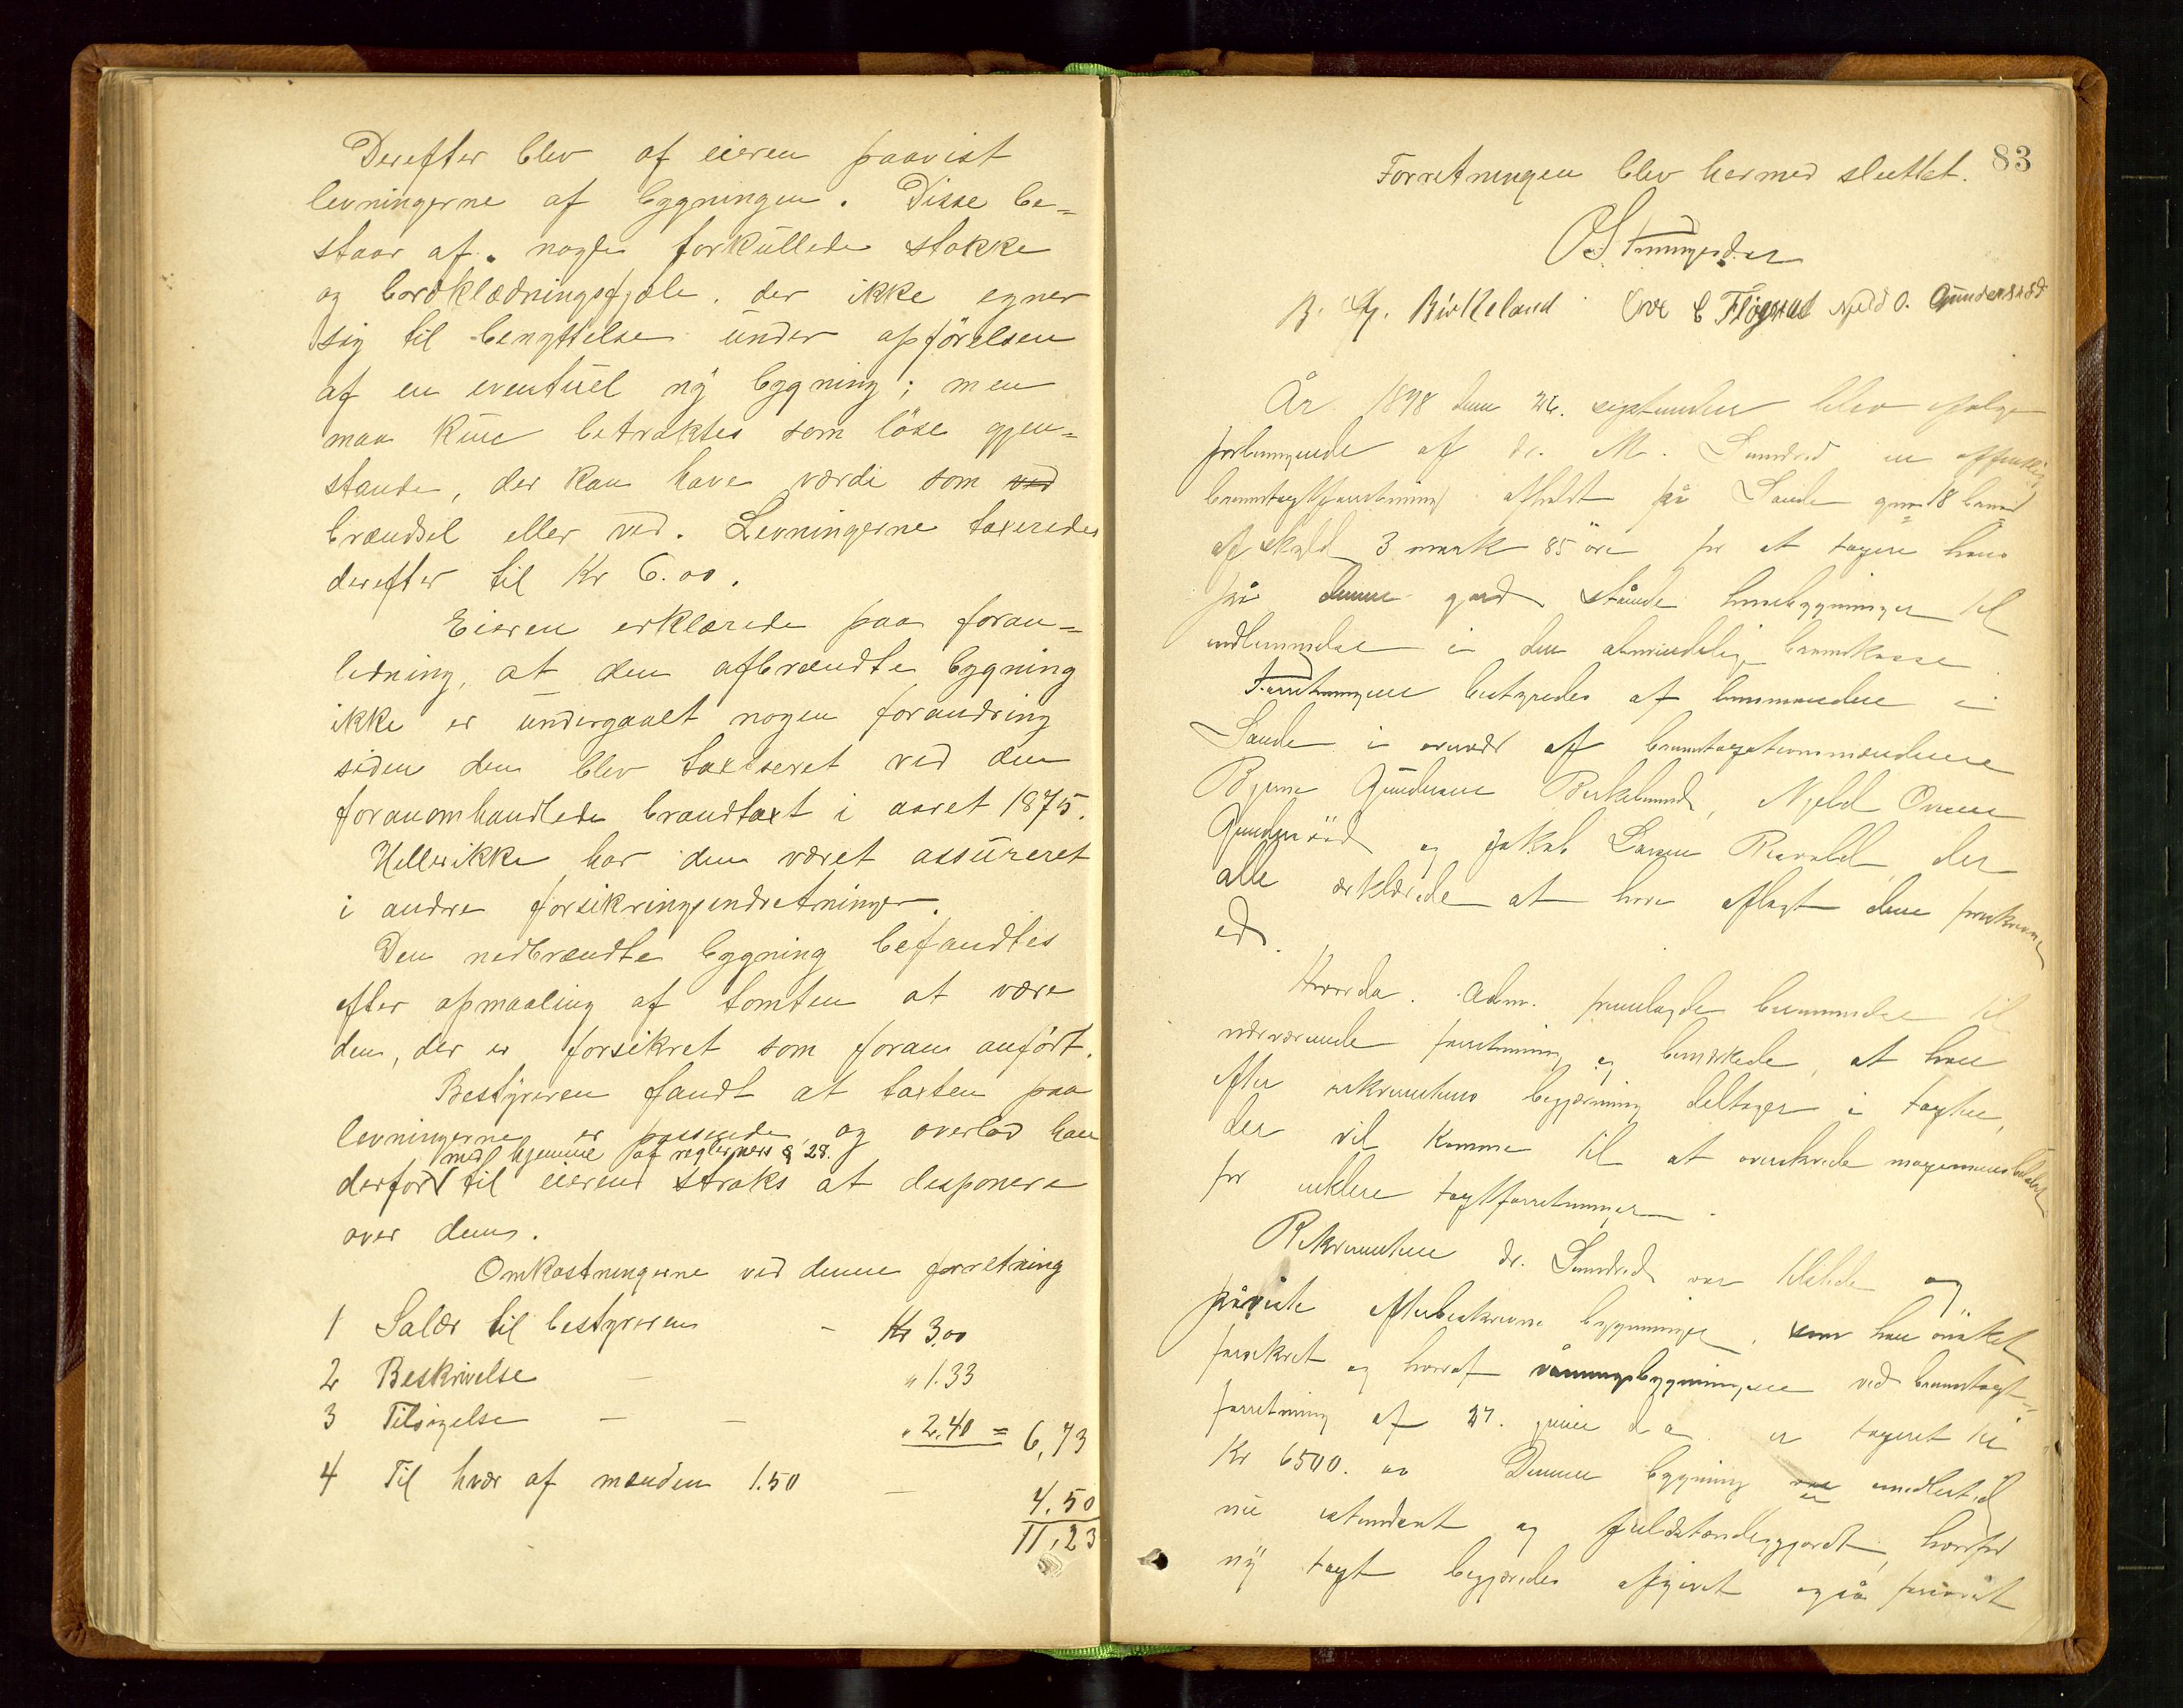 Derefter blev af eieren paavist
levningerne af bygningen. Disse be=
staar af. nogle forkullede stokke
og bordklædningsfjøle. der ikke egner
sig til benyttelse under opförelsen
af en eventuel ny bygning; men
maa kun betraktes som löse gjen=
stande, der kan have værdi som ved
brændsel eller ved. Levningerne taxeredes
derefter til Kr 6.00.
Eieren erklærede paa foran=
ledning, at den afbrændte bygning
ikke er undergaaet nogen forandring
siden den blev taxseret ved den
foranomhandlede brandtaxt i aaret 1875.
Heller ikke har den været assureret
i andre forsikringsindretninger.
Den nedbrændte bygning befandtes
efter opmaaling af tomten at være
den, der er forsikret som foran anfört.
Bestyreren fandt at taxten paa
levningerne er passende, og overlod han
med hjemme af reglernes § 28.
derfor til eieren straks at disponere
over dem.
Omkostningerne ved denne forretning
1 Salær til bestyreren - Kr 3.00
2 Beskrivelse - " 1.33
3 Tilsigelse - - " 2.40 = 6,73
4 Til hver af mænden 1.50 - 4.50
11,23
83
Forretningen blev hermed sluttet.
B. G. Birkeland Njeld O. Gundersröd
År 1898 den 26. september blev ifølge
forlangende af dr. M. Sundred en offentlig
branntaxtforretning afholdt på Sande gno 18 bno
af skyld 3 mark 85 öre for at taxere hans
på denne gard stående husebygninger til
indlemmelse i den almindelige brannkasse
Forretningen bestyredes af lensmanden i
Sande i overvær af branntaxationsmændene
Bjerne Gundersen Birkeland, Njeld Ovesen
Gundersröd og Jakob Larsen Revold, der
alle erklærede at have aflagt den foreskrevne
ed.
Hvorda. Adm. fremlagde berammelse til
nærværende forretning og bemærkede, at han
efter rekvirentens begjæring deltager i taxten,
der vil komme til at overskride maximumsbeløbet
for enklere taxtforretninger.
Rekvirenten dr. Sundred var tilstede og
påviste efterbeskrevne bygninger, som han önsket
forsikret og hvoraf våningsbygningen ved branntaxt=
forretning af 27. juni d a er taxeret til
Kr 6500. 00 Denne bygning er imidlertid
nu istandsat og fuldstændiggjordt, hvorfor
ny taxt begjæredes afgivet også forsåvidt